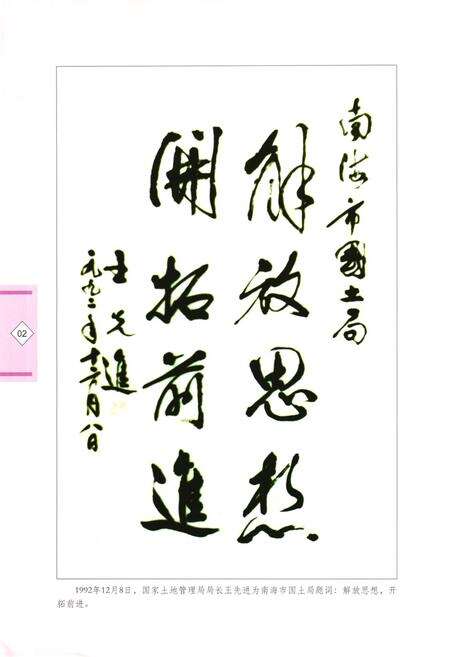 南海市國土局
解放思想
開拓前進
王先進
一九九二年十二月八日
02
1992年12月8日，国家土地管理局局长王先进为南海市国土局题词：解放思想，开
拓前进。